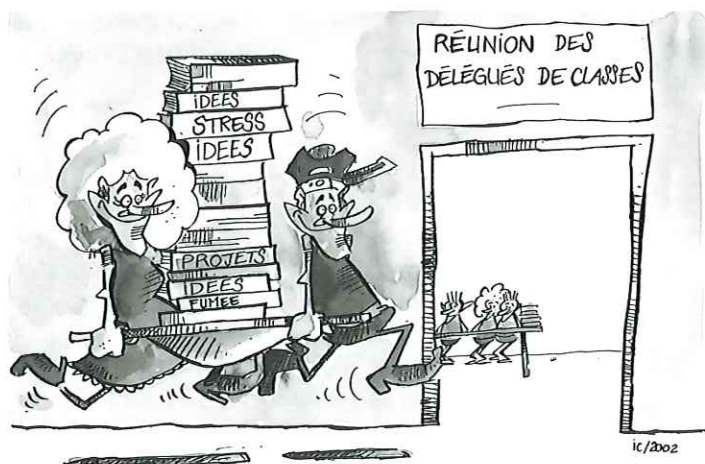 RÉUNION DES
DÉLÉGUÉS DE CLASSES
IDEES
STRESS
IDEES
PROJETS
IDEES
FUMEE
ic/2002